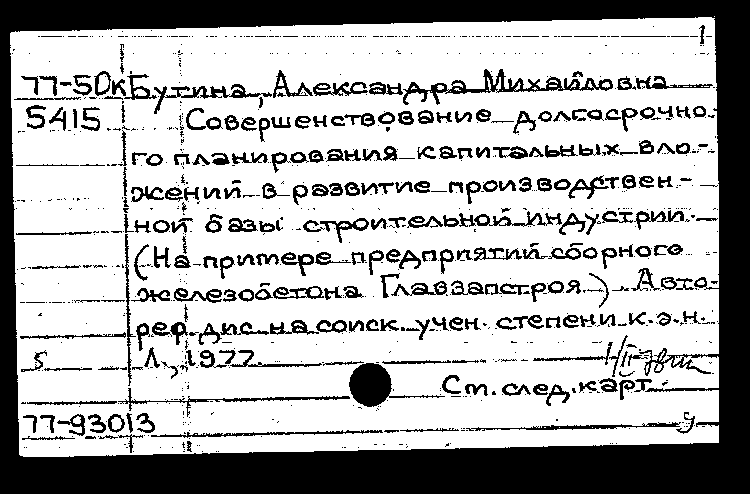 1
77-5Dк Бутина, Александра Михайловна
5415 Совершенствование долгосрочно-
го планирования капитальных вло-
жений в развитие производствен-
ной базы строительной индустрии.
(На примере предприятий сборного
железобетона Главзапстроя). Авто-
реф. дис. на соиск. учен. степени к.э.н.
5 Л., 1977.
Ст. след. карт.
77-93013